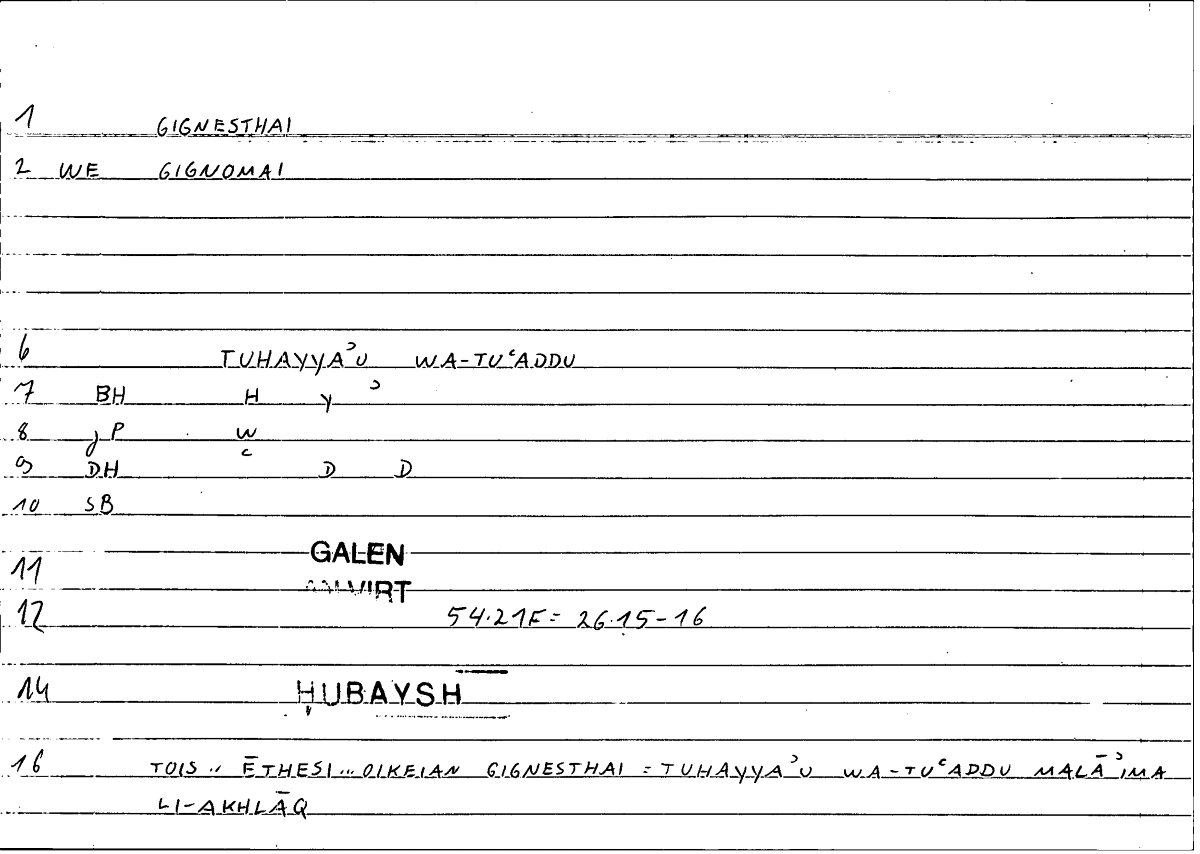 1 GIGNESTHAI
2 WE GIGNOMAI
6 TUHAYYAʾU WA-TUʿADDU
7 BH H Y ʾ
8 JP W
9 DH ʿ D D
10 SB
11 GALEN
ANVIRT
12 54.21F = 26.15-16
14 ḤUBAYSH
16 TOIS .. ĒTHESI ... OIKEIAN GIGNESTHAI = TUHAYYAʾU WA-TUʿADDU MALĀʾIMA
LI-AKHLĀQ